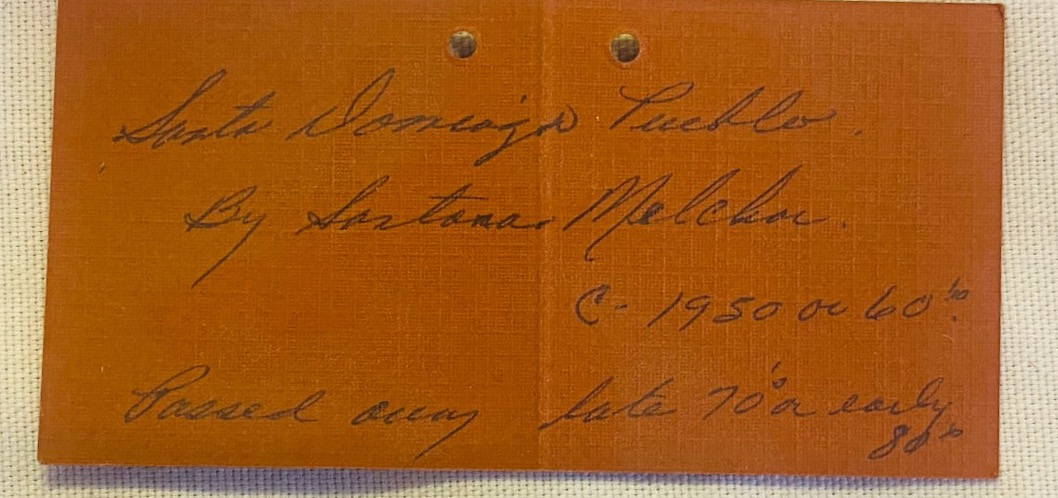 Santa Domingo Pueblo.
By Santana Melchor.
C- 1950 or 60's.
Passed away late 70's or early
80's